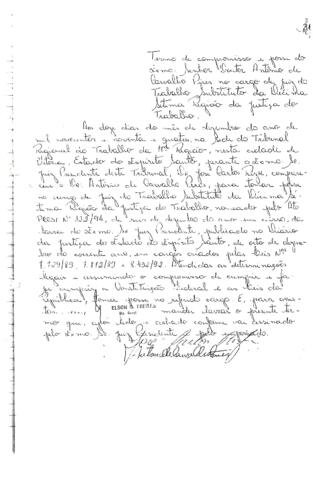 Termo de compromisso e posse do
Exmo. Senhor Doutor Antônio de
Carvalho Pires no cargo de Juiz do
Trabalho Substituto da Décima
Sétima Região da Justiça do
Trabalho.
Aos doze dias do mês de dezembro do ano de
mil novecentos e noventa e quatro, na Sede do Tribunal
Regional do Trabalho da 17ª Região, nesta cidade de
Vitória, Estado do Espírito Santo, perante o Exmo. Sr.
Juiz Presidente deste Tribunal, Dr. José Carlos Rizk, compare-
ceu o Dr. Antônio de Carvalho Pires, para tomar posse
no cargo de Juiz do Trabalho Substituto da Décima Sé-
tima Região da Justiça do Trabalho, nomeado pelo Ato
PRESI Nº /94, de de dezembro do ano em curso, da
lavra do Exmo. Sr. Juiz Presidente, publicado no Diário
da Justiça do Estado do Espírito Santo, de oito de dezem-
bro do corrente ano, em cargos criados pelas Leis Nºs
7.729/89, 7.872/89 e 8.432/92. Atendidas as determinações
legais e assumindo o compromisso de cumprir e fa-
zer cumprir a Constituição Federal e as Leis da
República, tomou posse no referido cargo. E, para cons-
tar, mandei lavrar o presente ter-
mo que, após lido e achado conforme vai assinado
pelo Exmo. Sr. Juiz Presidente e pelo empossado.